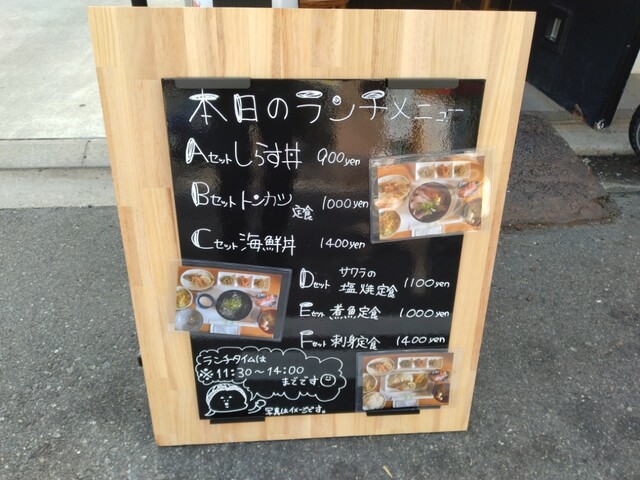 本日のランチメニュー
Aセット しらす丼 900yen
Bセット トンカツ定食 1000yen
Cセット 海鮮丼 1400yen
Dセット サワラの塩焼定食 1100yen
Eセット 煮魚定食 1000yen
Fセット 刺身定食 1400yen
ランチタイムは
※11:30〜14:00
までです
写真はイメージです。